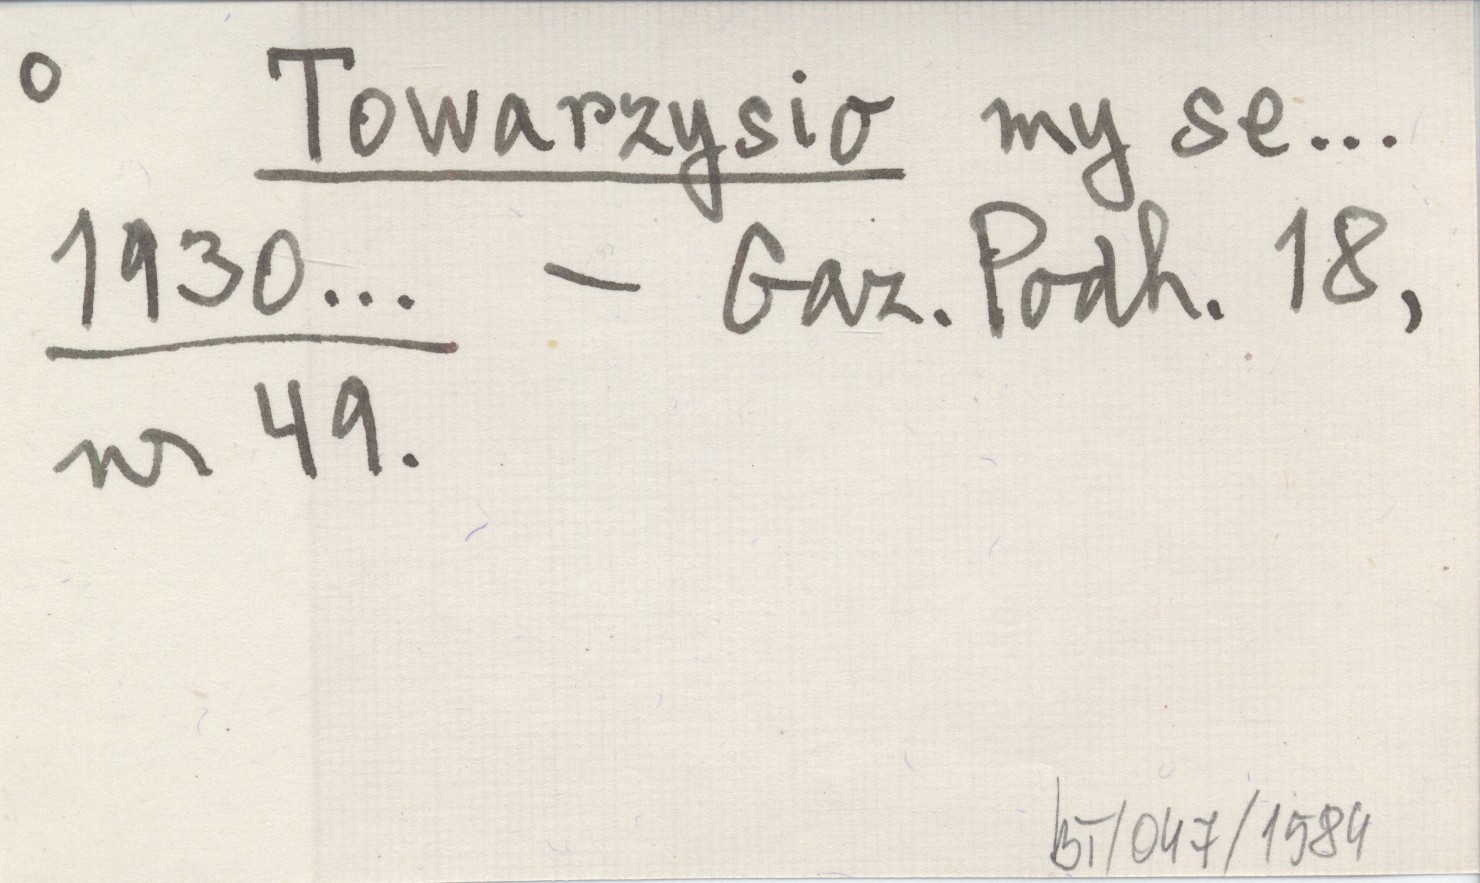 o Towarzysio my se...
1930... – Gaz. Podh. 18,
nr 49.
BT/047/1584